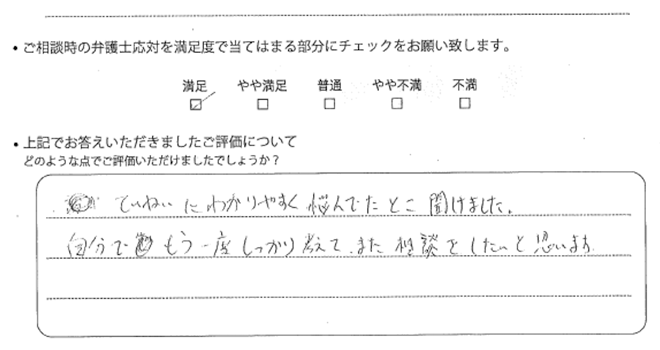 ・ご相談時の弁護士応対を満足度で当てはまる部分にチェックをお願い致します。
満足 やや満足 普通 やや不満 不満
・上記でお答えいただきましたご評価について
どのような点でご評価いただけましたでしょうか？
ていねいにわかりやすく悩んでたとこ聞けました。
自分でもう一度しっかり考えて、また相談をしたいと思います